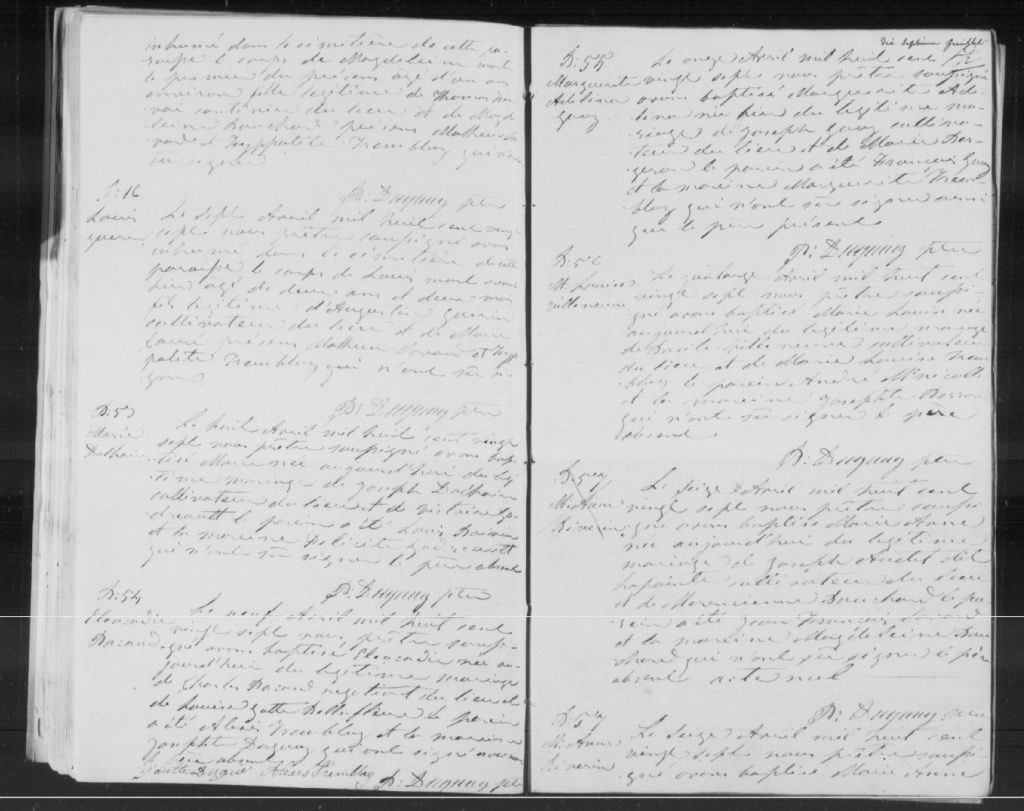 inhumé dans le cimetière de cette pa-
roisse le corps de Magdeleine morte
le premier du présent agé d'un an
environ fille légitime de Thomas
du lieu et de Magde-
leine Bouchard présens Mathieu Sa-
vard et Hyppolite Tremblay qui n'ont
su signer
B: Duguay ptre
S: 16
Louis
guerin
Le sept Avril mil huit cent vingt
sept nous prêtre soussigné avons
inhumé dans le cimetière de cette
paroisse le corps de Louis mort avant
hier agé de deux ans et deux mois
fils légitime d'Augustin guerin
cultivateur du lieu et de Marie
présens Mathieu Savard et Hyp-
polite Tremblay qui n'ont su si-
gner
B: Duguay ptre
B: 53
Marie
Dallaire
Le huit Avril mil huit cent vingt
sept nous prêtre soussigné avons bap-
tisé Marie née aujourd'hui du légi-
time mariage de Joseph Dallaire
cultivateur du lieu et de Victoire
le parein a été Louis
et la mareine Félicité
qui n'ont su signer le père absent
B: Duguay ptre
B: 54
Leocadie
Le neuf Avril mil huit cent
vingt sept nous prêtre soussi-
gné avons baptisé Leocadie née au-
jourd'hui du légitime mariage
de Charles negotiant du lieu et
de Louise le parein
a été Alexis Tremblay et la mareine
Josephte Duguay qui ont signé avec nous
le père absent
Alexis Tremblay
B: Duguay ptre
dix septieme feuillet
B: 55
Marguerite
Adelina
gauz
Le onze Avril mil huit cent
vingt sept nous prêtre soussigné
avons baptisé Marguerite Ade-
lina née hier du légitime ma-
riage de Joseph cultiva-
teur du lieu et de Marie Ber-
geron le parein a été François
et la mareine Marguerite Trem-
blay qui n'ont su signer ainsi
que le père présent
B: Duguay ptre
B: 56
M. Louise
villeneuve
Le quatorze Avril mil huit cent
vingt sept nous prêtre soussi-
gné avons baptisé Marie Louise née
aujourd'hui du légitime mariage
de Basile villeneuve cultivateur
du lieu et de Marie Louise Trem-
blay le parein André McNicoll
et la mareine Josephte
qui n'ont su signer le père
absent
B: Duguay ptre
B: 57
M: Anne
Riverin
Le Seize Avril mil huit cent
vingt sept nous prêtre soussi-
gné avons baptisé Marie Anne
née aujourd'hui du légitime
mariage de Joseph Audet dit
Lapointe cultivateur du lieu
et de Bouchard le pa-
rein a été Jean François Savard
et la mareine Magdeleine Bou-
chard qui n'ont su signer le père
absent acte nul
B: Duguay ptre
B: 57
M: Anne
Riverin
Le Seize Avril mil huit cent
vingt sept nous prêtre soussi-
gné avons baptisé Marie Anne